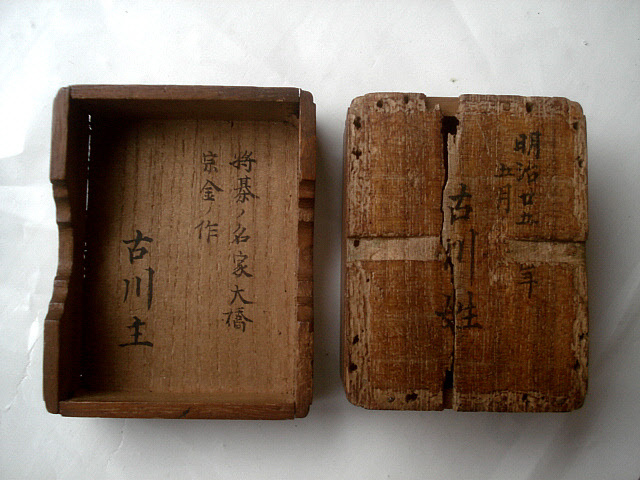 将棊ノ名家大橋
宗金ノ作
古川土
明治廿五年
五月
古川姓